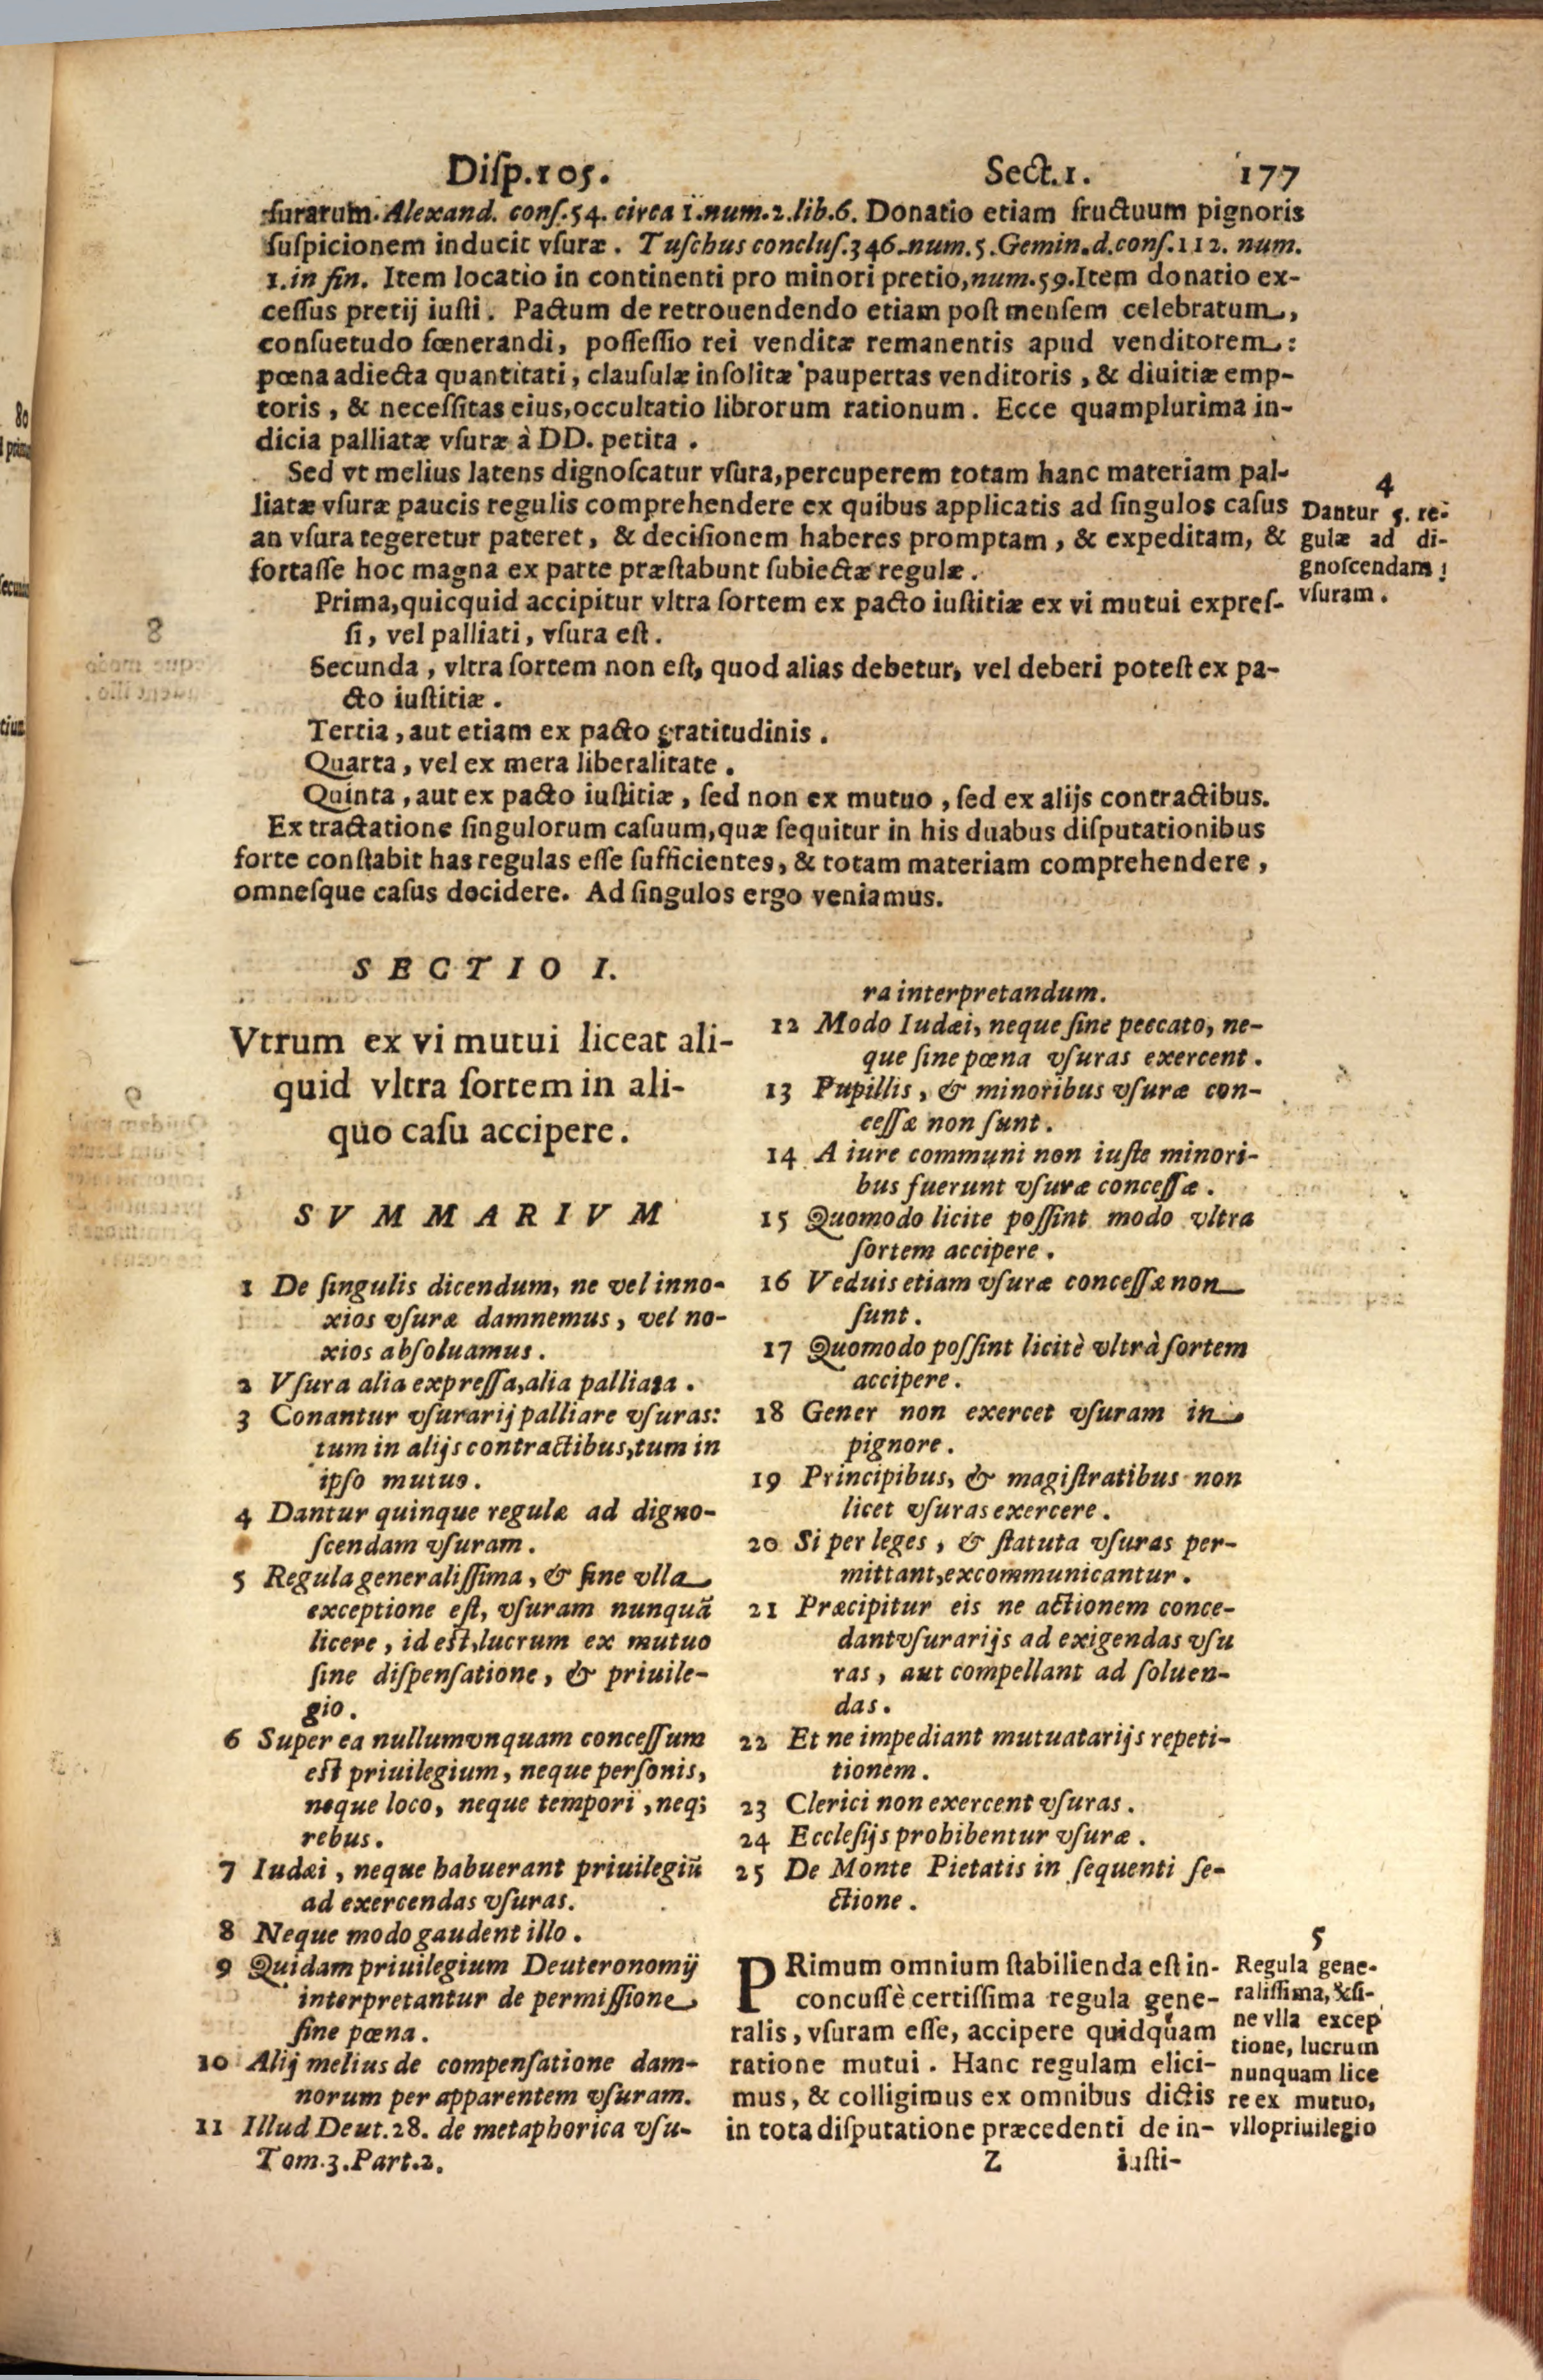 Disp.105. Sect.1. 177
surarum. Alexand. cons.54. circa 1.num.2.lib.6. Donatio etiam fructuum pignoris
suspicionem inducit vsuræ. Tuschus conclus.346.num.5.Gemin.d.cons.112. num.
1.in fin. Item locatio in continenti pro minori pretio,num.59.Item donatio ex-
cessus pretij iusti. Pactum de retrouendendo etiam post mensem celebratum,
consuetudo fœnerandi, possessio rei venditæ remanentis apud venditorem:
pœna adiecta quantitati, clausulæ insolitæ paupertas venditoris, & diuitiæ emp-
toris, & necessitas eius,occultatio librorum rationum. Ecce quamplurima in-
dicia palliatæ vsuræ à DD. petita.
Sed vt melius latens dignoscatur vsura,percuperem totam hanc materiam pal-
liatæ vsuræ paucis regulis comprehendere ex quibus applicatis ad singulos casus
an vsura tegeretur pateret, & decisionem haberes promptam, & expeditam, &
fortasse hoc magna ex parte præstabunt subiectæ regulæ.
4
Dantur 5. re-
gulæ ad di-
gnoscendam
vsuram.
Prima,quicquid accipitur vltra sortem ex pacto iustitiæ ex vi mutui expres-
si, vel palliati, vsura est.
Secunda, vltra sortem non est, quod alias debetur, vel deberi potest ex pa-
cto iustitiæ.
Tertia, aut etiam ex pacto gratitudinis.
Quarta, vel ex mera liberalitate.
Quinta, aut ex pacto iustitiæ, sed non ex mutuo, sed ex alijs contractibus.
Ex tractatione singulorum casuum,quæ sequitur in his duabus disputationibus
forte constabit has regulas esse sufficientes, & totam materiam comprehendere,
omnesque casus decidere. Ad singulos ergo veniamus.
SECTIO I.
Vtrum ex vi mutui liceat ali-
quid vltra sortem in ali-
quo casu accipere.
SVMMARIVM
1 De singulis dicendum, ne vel inno-
xios vsuræ damnemus, vel no-
xios absoluamus.
2 Vsura alia expressa,alia palliata.
3 Conantur vsurarij palliare vsuras:
tum in alijs contractibus,tum in
ipso mutuo.
4 Dantur quinque regulæ ad digno-
scendam vsuram.
5 Regula generalissima, & sine vlla
exceptione est, vsuram nunquã
licere, id est,lucrum ex mutuo
sine dispensatione, & priuile-
gio.
6 Super ea nullum vnquam concessum
est priuilegium, neque personis,
neque loco, neque tempori, neq;
rebus.
7 Iudæi, neque habuerant priuilegiũ
ad exercendas vsuras.
8 Neque modo gaudent illo.
9 Quidam priuilegium Deuteronomij
interpretantur de permissione
sine pœna.
10 Alij melius de compensatione dam-
norum per apparentem vsuram.
11 Illud Deut.28. de metaphorica vsu-
ra interpretandum.
12 Modo Iudæi, neque sine peccato, ne-
que sine pœna vsuras exercent.
13 Pupillis, & minoribus vsuræ con-
cessæ non sunt.
14 A iure communi non iuste minori-
bus fuerunt vsuræ concessæ.
15 Quomodo licite possint modo vltra
sortem accipere.
16 Veduis etiam vsuræ concessæ non
sunt.
17 Quomodo possint licitè vltrà sortem
accipere.
18 Gener non exercet vsuram in
pignore.
19 Principibus, & magistratibus non
licet vsuras exercere.
20 Si per leges, & statuta vsuras per-
mittant,excommunicantur.
21 Præcipitur eis ne actionem conce-
dant vsurarijs ad exigendas vsu
ras, aut compellant ad soluen-
das.
22 Et ne impediant mutuatarijs repeti-
tionem.
23 Clerici non exercent vsuras.
24 Ecclesijs prohibentur vsuræ.
25 De Monte Pietatis in sequenti se-
ctione.
PRimum omnium stabilienda est in-
concussè certissima regula gene-
ralis, vsuram esse, accipere quidquam
ratione mutui. Hanc regulam elici-
mus, & colligimus ex omnibus dictis
in tota disputatione præcedenti de in-
5
Regula gene-
ralissima, & si-
ne vlla excep
tione, lucrum
nunquam lice
re ex mutuo,
vllo priuilegio
Tom.3.Part.2. Z iusti-